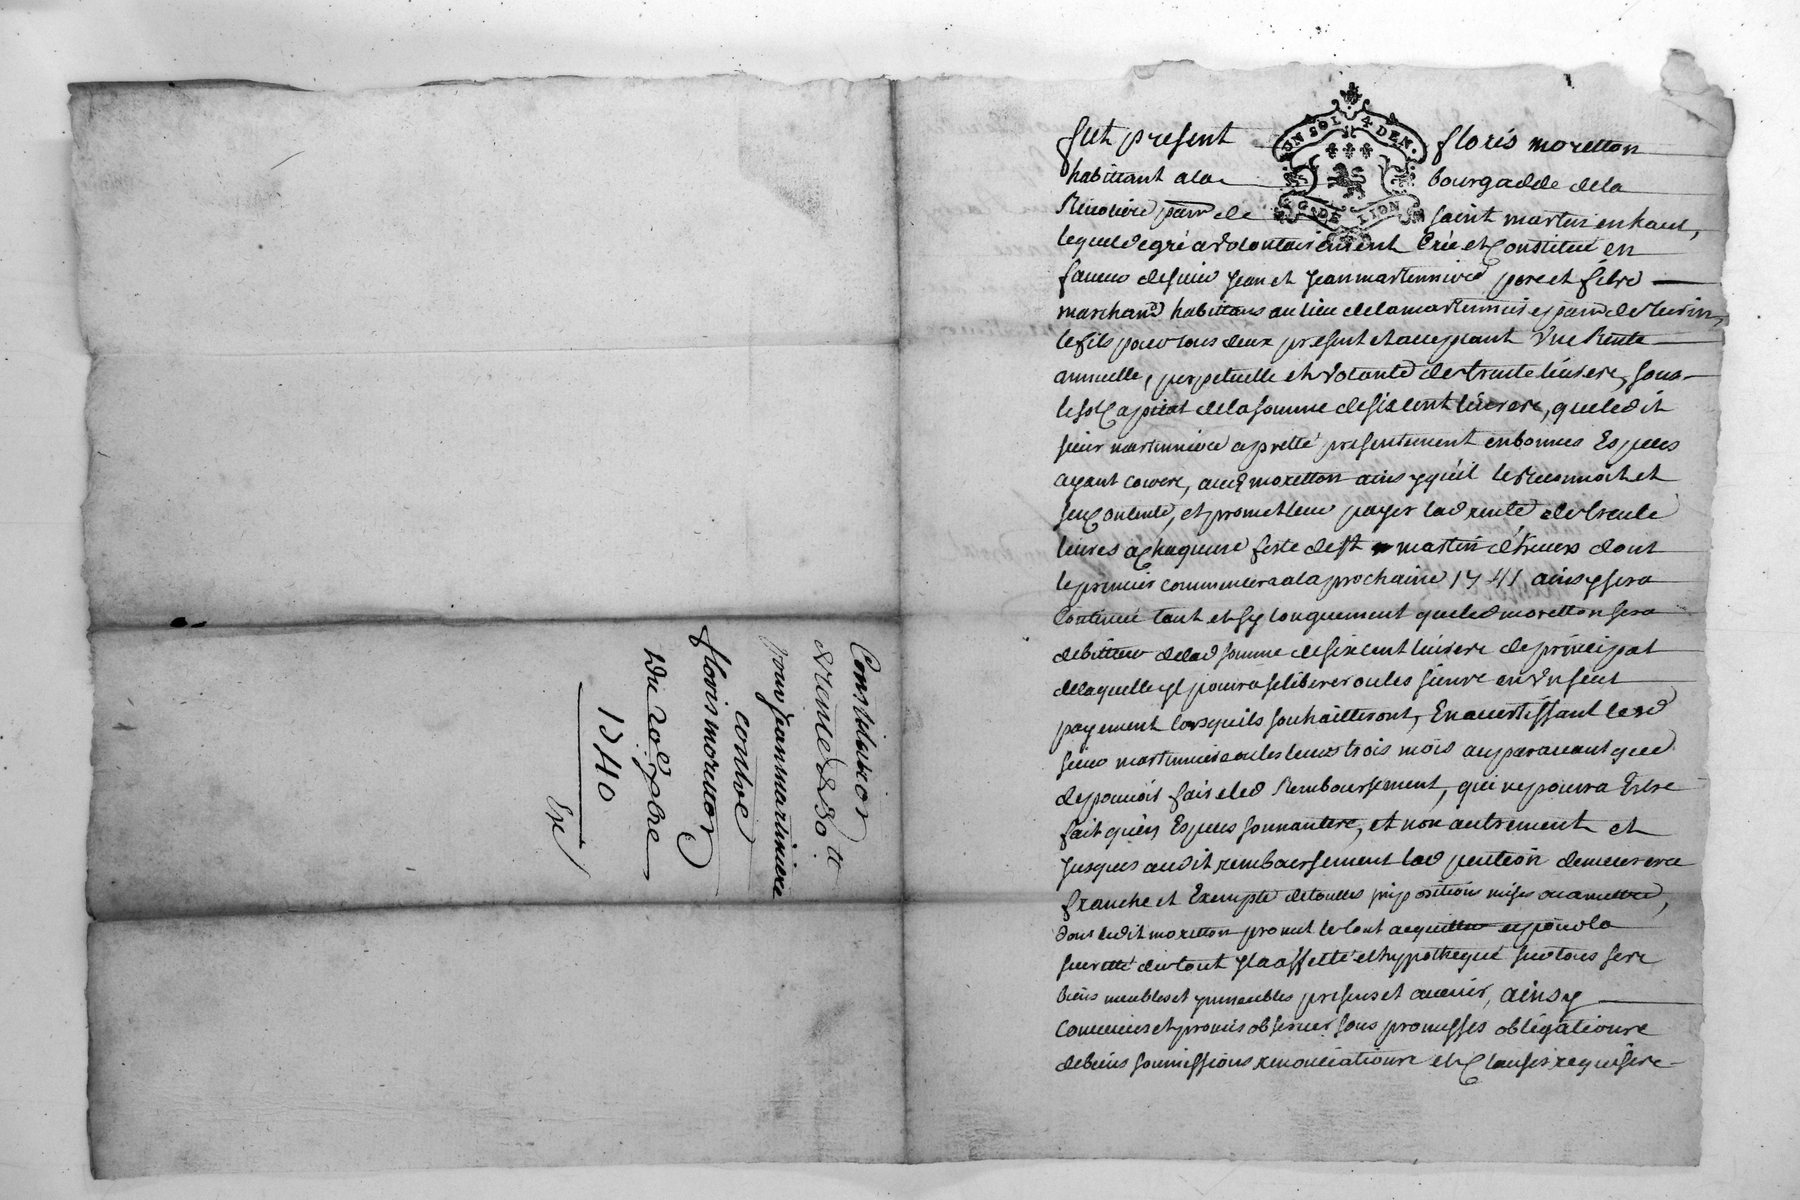 Constitution
de rente de 30 tt
pour jean martiniere
contre
floris moretton
Du 20 8bre
1740
Ex
UN SOL 4 DEN.
G. DE LION
fut present floris moretton
habittant a la bourgadde de la
Rivoliere parr de saint martin en haut,
lequel de gré a volontairement Crée et Constitué en
faveur de sieur Jean et Jean martinniere pere et fils
marchand habittans au lieu de la martinniere parr de
le fils pour tous deux present et acceptant Une Rente
annuelle, perpetuelle et volante de trente livres, sous
le sol Capital de la somme de six cent livres, que le dit
sieur martinniere a pretté presentement en bonnes Especes
ayant cours, aud moretton ainsy qu'il le Reconnoit et
sen Contente, et promet leur payer lad rente de trente
livres a Chaqune feste de st martin d'hivers dont
le premier commencera a la prochaine 1741 ainsy sera
Continué tant et sy longuement que led moretton sera
debitteur de lad somme de six cent livres de principal
de laquelle yl poura se liberer ou les siens en Un seul
payement lorsquils souhaitteront, En avertissant led
sieur martinniere ou les siens trois mois auparavant que
de pouvoir faire led Remboursement, qui ne poura Estre
fait qu'en Especes sonnantes, et non autrement et
jusques audit remboursement lad pention demeurera
franche et Exempte de touttes jmpositions mises ou a mettre,
dont ledit moretton promet le tout acquitter et pour la
seuretté du tout yl a affetté et hypothequé sur tous ses
biens meubles et ymmeubles presens et avenir, ainsy
Convenu et promis observer sous promesses obligations
de biens soumissions renonciations et Clauses requises